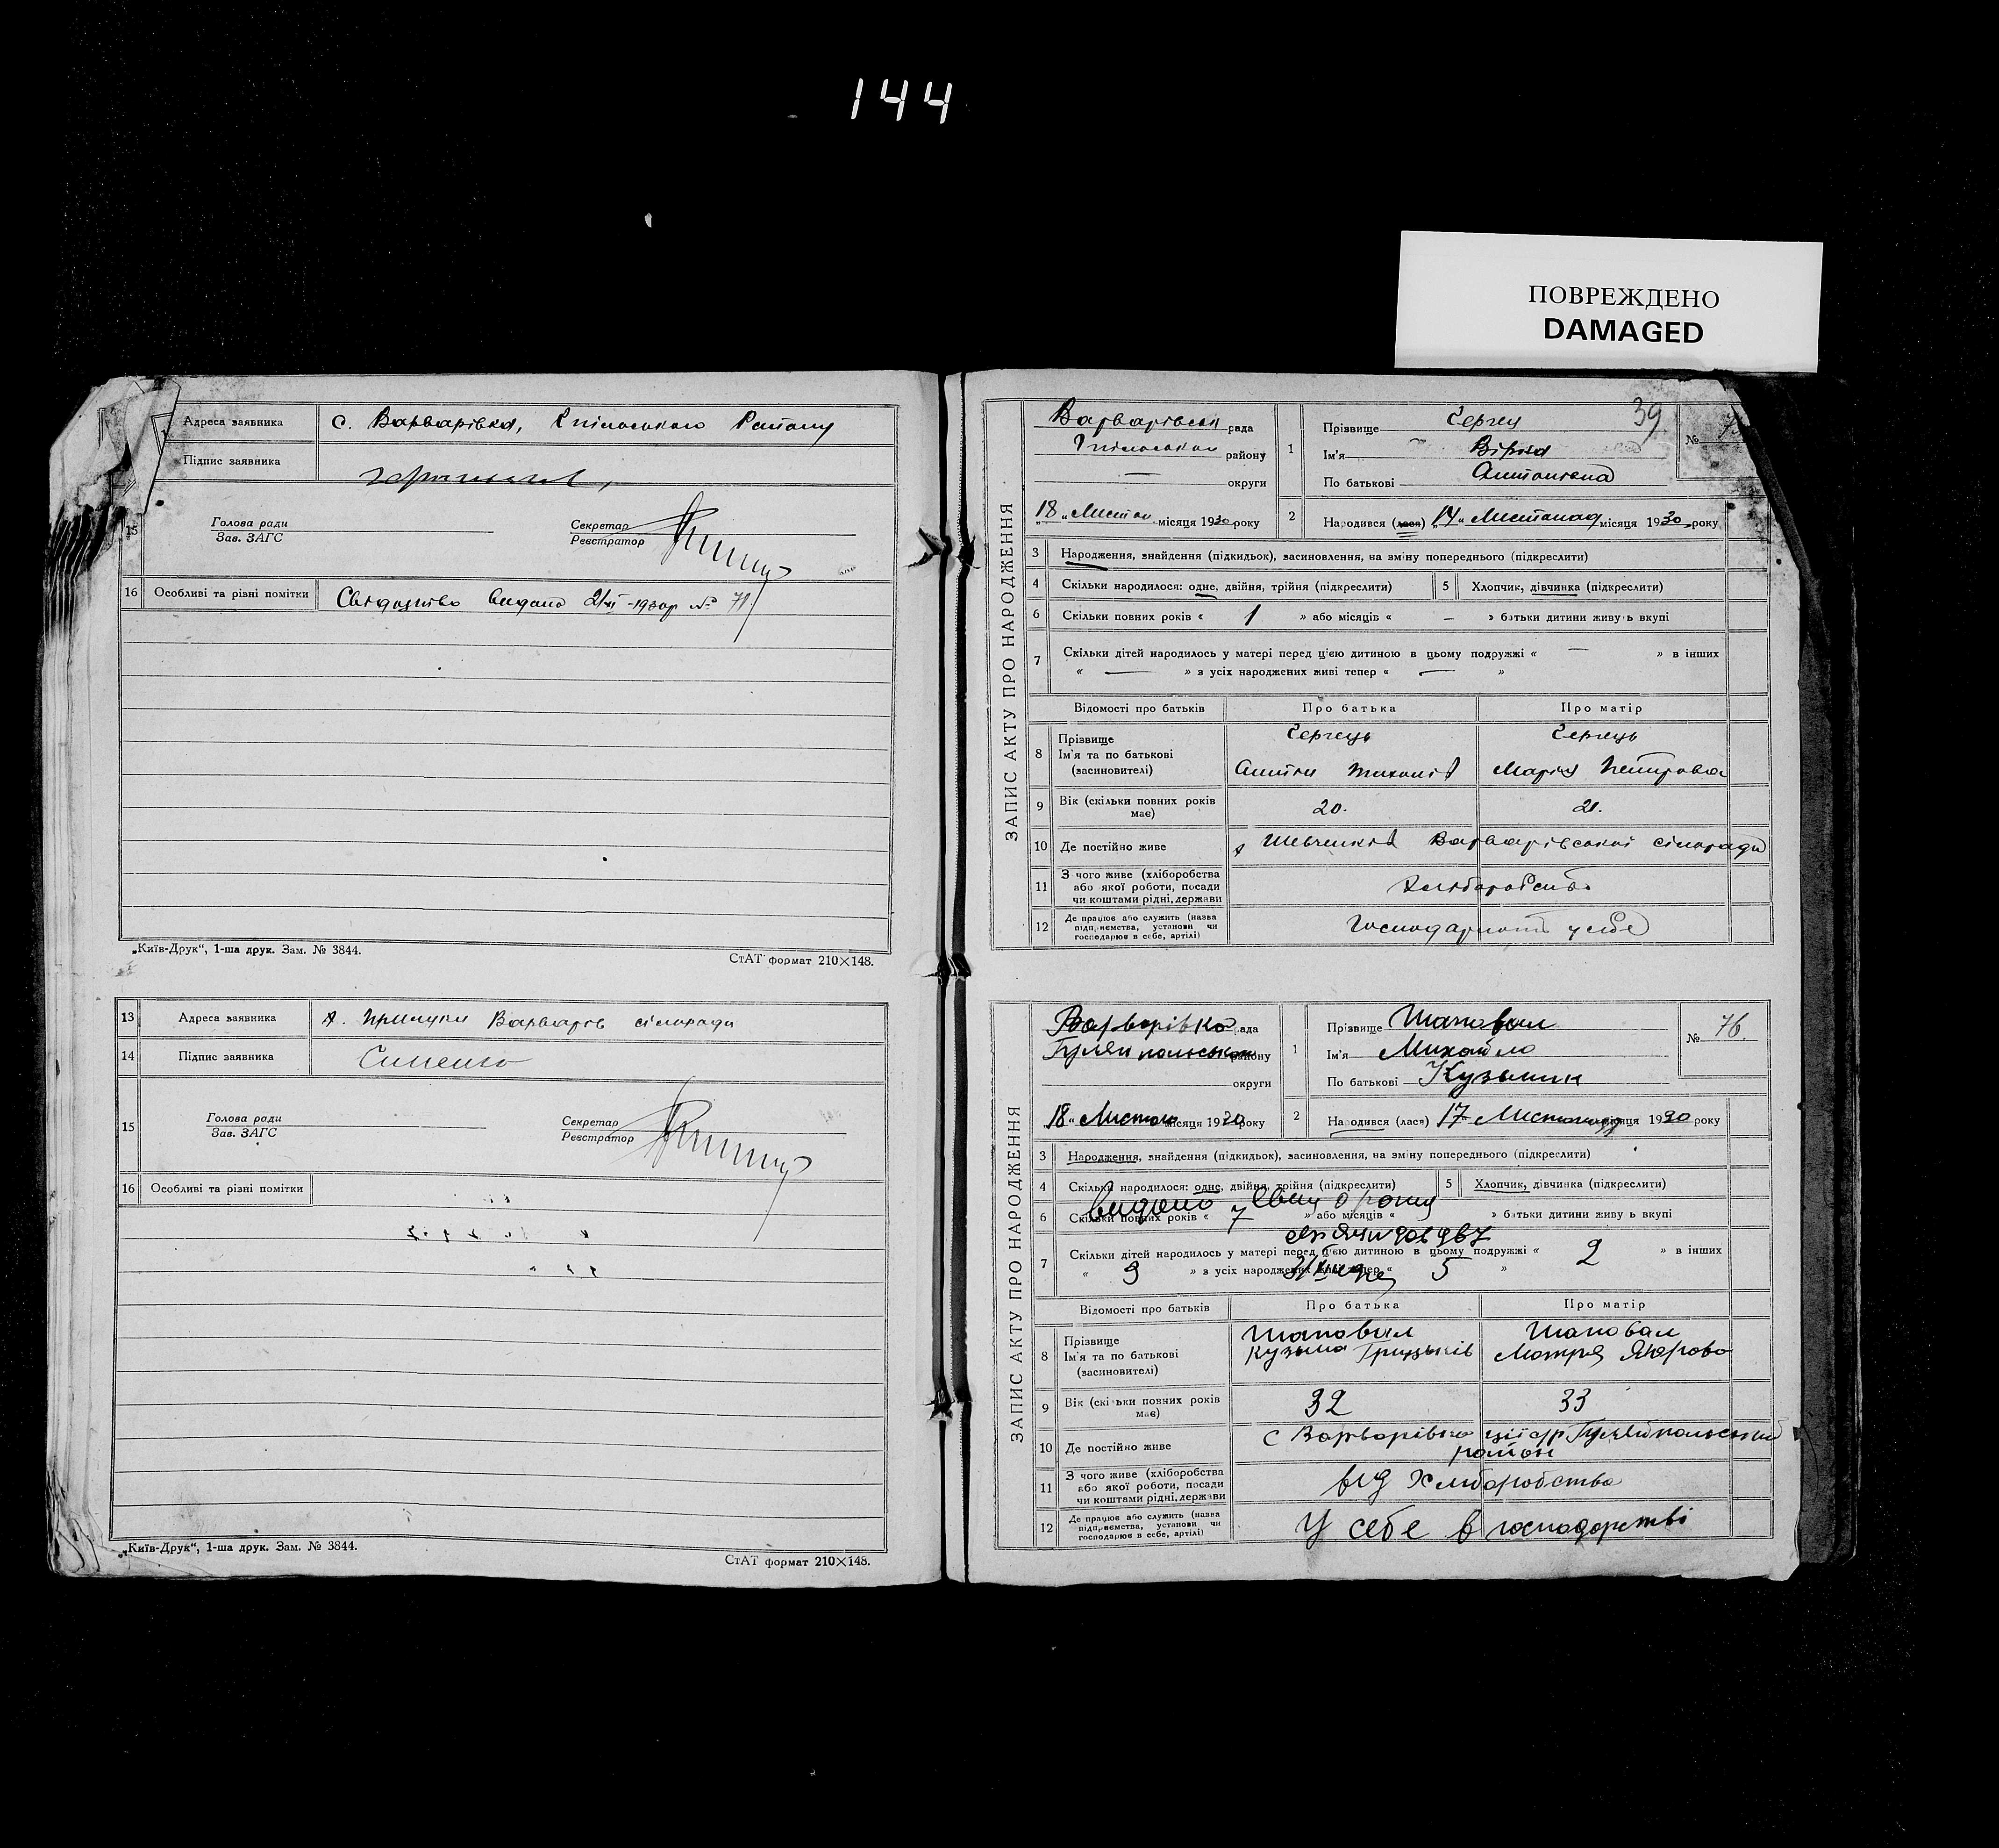 144
ПОВРЕЖДЕНО
DAMAGED
Адреса заявника с. Варварівка, Району
Підпис заявника
15 Голова ради Секретар
Зав. ЗАГС Реєстратор
16 Особливі та різні помітки Свідоцтво видано 21/XI-1930р № 71.
„Київ-Друк“, 1-ша друк. Зам. № 3844.
СтАТ формат 210×148.
13 Адреса заявника х. Прилуки Варварів сільради
14 Підпис заявника
15 Голова ради Секретар
Зав. ЗАГС Реєстратор
16 Особливі та різні помітки
„Київ-Друк“, 1-ша друк. Зам. № 3844.
СтАТ формат 210×148.
39
ЗАПИС АКТУ ПРО НАРОДЖЕННЯ
Варварівськ рада
району
— округи
„18“ Листоп місяця 1930 року
1 Прізвище
Ім'я Вірка
По батькові Антонівна
№
2 Народився (лася) „14“ Листопад місяця 1930 року
3 Народження, знайдення (підкидьок), засиновлення, на зміну попереднього (підкреслити)
4 Скільки народилося: одне, двійня, трійня (підкреслити) 5 Хлопчик, дівчинка (підкреслити)
6 Скільки повних років « 1 » або місяців « — » батьки дитини живуть вкупі
7 Скільки дітей народилось у матері перед цією дитиною в цьому подружжі « — » в інших
« — » з усіх народжених живі тепер « — »
Відомості про батьків Про батька Про матір
8 Прізвище
Ім'я та по батькові
(засиновителі) Антін Марія Петрова
9 Вік (скільки повних років має) 20. 21.
10 Де постійно живе х Шевченків Варварівської сільради
11 З чого живе (хліборобства
або якої роботи, посади
чи коштами рідні, держави Хліборобство
12 Де працює або служить (назва
підприємства, установи чи
господарює в себе, артілі) у себе
ЗАПИС АКТУ ПРО НАРОДЖЕННЯ
Варварівка рада
Гуляйпольськ району
округи
18 „ Листоп місяця 1930 року
1 Прізвище Шаповал
Ім'я Михайло
По батькові Кузьмич
№ 76.
2 Народився (лася) 17 Листопад місяця 1930 року
3 Народження, знайдення (підкидьок), засиновлення, на зміну попереднього (підкреслити)
4 Скільки народилося: одне, двійня, трійня (підкреслити) 5 Хлопчик, дівчинка (підкреслити)
видано
6 Скільки повних років « 7 » або місяців « » батьки дитини живуть вкупі
7 Скільки дітей народилось у матері перед цією дитиною в цьому подружжі « 2 » в інших
« 3 » з усіх народжених живі тепер « 5 »
Відомості про батьків Про батька Про матір
8 Прізвище Шаповал Шаповал
Ім'я та по батькові Кузьма Грицьків Мотря
(засиновителі)
9 Вік (скільки повних років має) 32 33
10 Де постійно живе с Варварівка Гуляйпольський
район
11 З чого живе (хліборобства
або якої роботи, посади
чи коштами рідні, держави від Хліборобства
12 Де працює або служить (назва
підприємства, установи чи
господарює в себе, артілі) У себе в господарстві